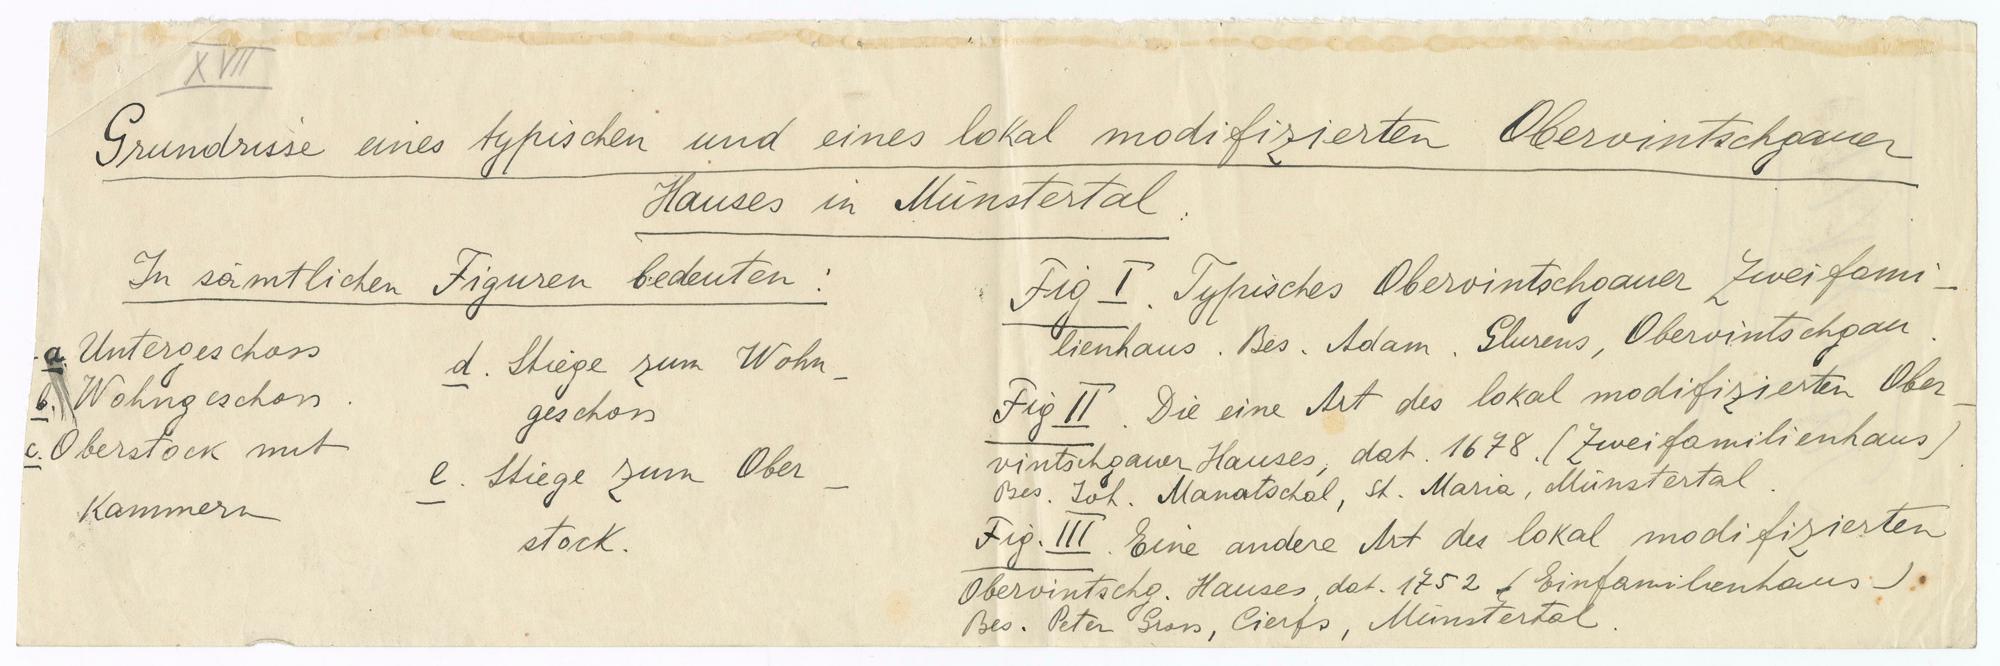 XVII
Grundrisse eines typischen und eines lokal modifizierten Obervintschgauer
Hauses in Münstertal.
In sämtlichen Figuren bedeuten:
a Untergeschoss
b. Wohngeschoss.
c. Oberstock mit
Kammern
d. Stiege zum Wohn-
geschoss
e. Stiege zum Ober-
stock.
Fig I. Typisches Obervintschgauer Zweifami-
lienhaus. Bes. Adam. Glurens, Obervintschgau.
Fig II. Die eine Art des lokal modifizierten Ober-
vintschgauer Hauses, dat. 1678. (Zweifamilienhaus)
Bes. Joh. Manatschal, St. Maria, Münstertal.
Fig. III. Eine andere Art des lokal modifizierten
Obervintschg. Hauses, dat. 1752 (Einfamilienhaus)
Bes. Peter Gross, Cierfs, Münstertal.